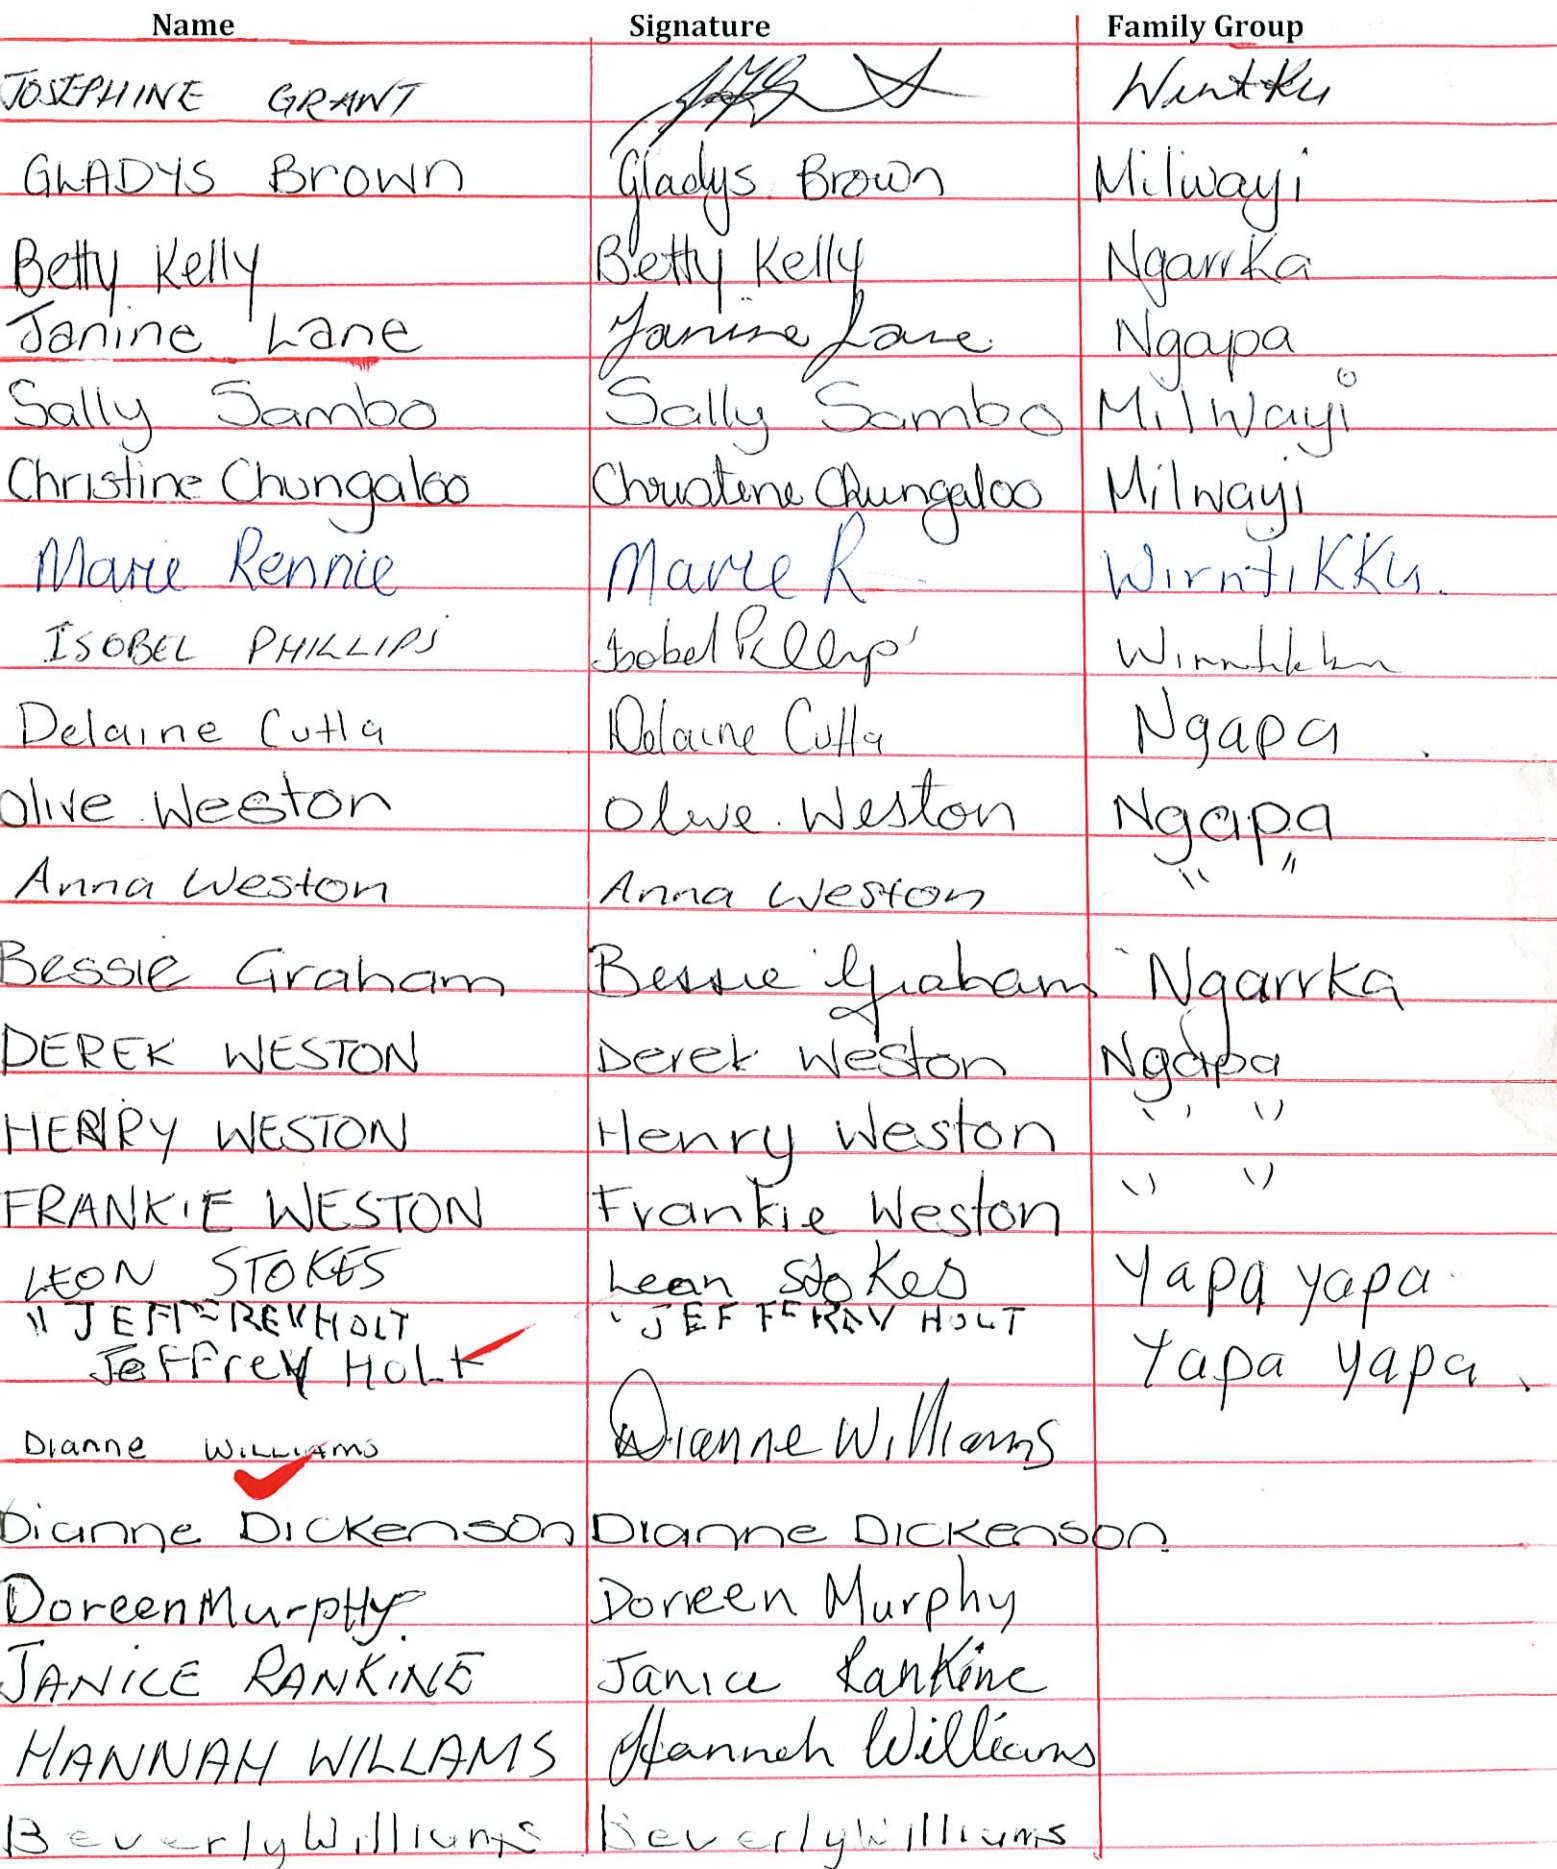 Name Signature Family Group
JOSEPHINE GRANT
GLADYS Brown Gladys Brown Milwayi
Betty Kelly Betty Kelly Ngarrka
Janine Lane Janine Lane Ngapa
Sally Sambo Sally Sambo Milwayi
Christine Chungaloo Christine Chungaloo Milwayi
Marie Rennie Marie R Wirntikku.
ISOBEL PHILLIPS Isobel Phillips
Delaine Cutta Delaine Cutta Ngapa
Olive Weston Olive Weston Ngapa
Anna Weston Anna Weston " "
Bessie Graham Bessie Graham Ngarrka
DEREK WESTON Derek Weston Ngapa
HENRY WESTON Henry Weston " "
FRANKIE WESTON Frankie Weston " "
LEON STOKES Leon Stokes Yapa yapa
" JEFFEREY HOLT " JEFFEREY HOLT
Jeffrey Holt Yapa yapa.
Dianne WILLIAMS Dianne Williams
Dianne Dickenson Dianne Dickenson
Doreen Murphy Doreen Murphy
JANICE RANKINE Janice Rankine
HANNAH WILLAMS Hannah Williams
Beverly Williams Beverly Williams